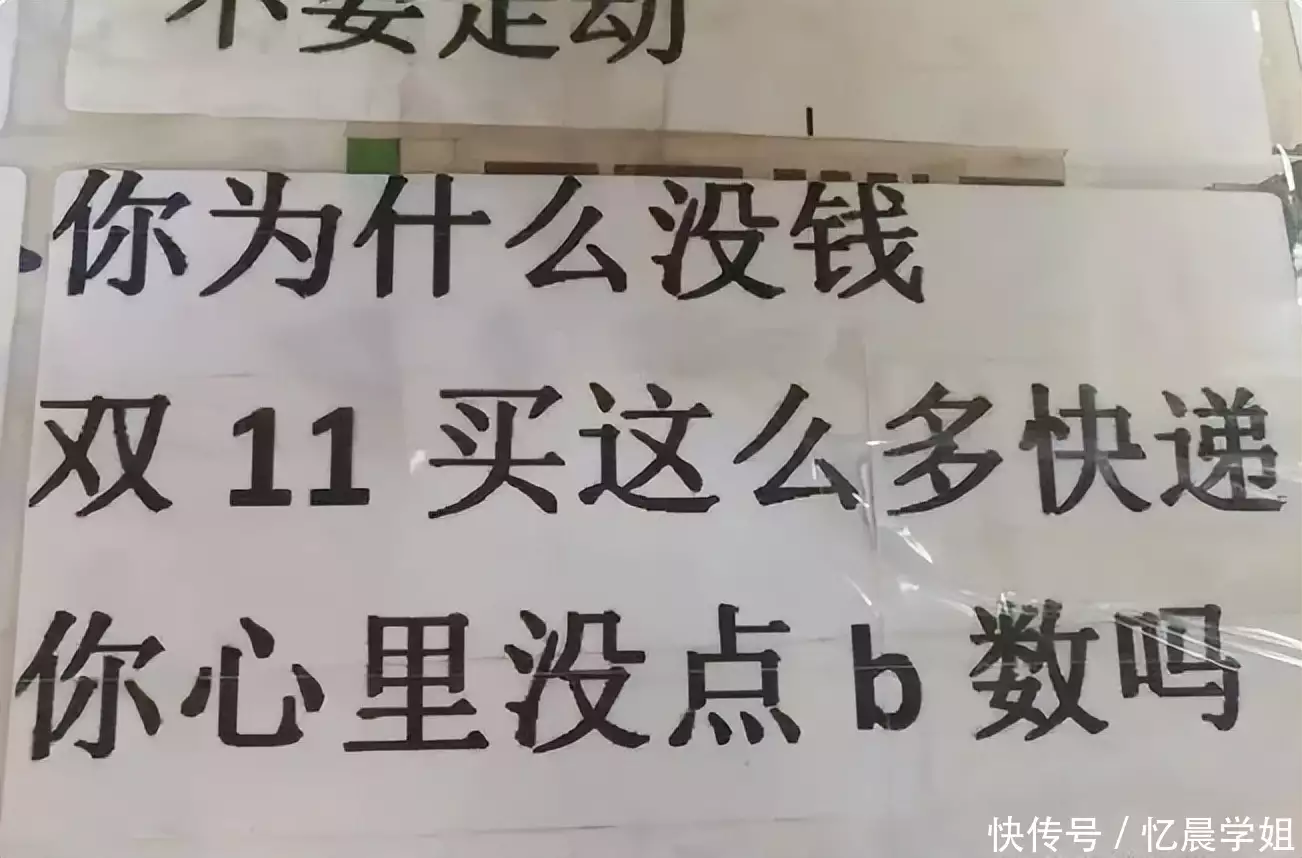 不要走动
你为什么没钱
双11买这么多快递
你心里没点b数吗
快传号 / 忆晨学姐